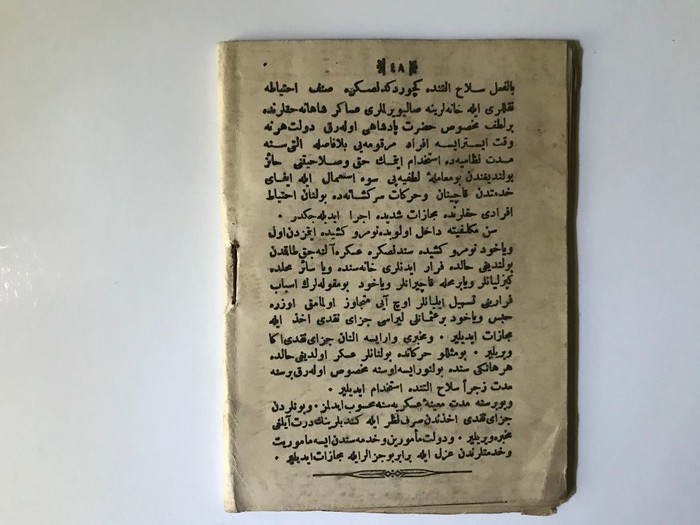 ٤٨
بالفعل سلاح التنده كچوردكدنصكره صنف احتياطه
نقللرى ايله خانه لرينه صاليويرلملرى عساكر شاهانه حقلرنده
بر لطف مخصوص حضرت پادشاهى اوله رق دولت هر نه
وقت ايسترايسه افراد مرقومه يى بلافاصله التى سنه
مدت نظاميه ده استخدام ايتمك حق وصلاحيتنى حائز
بولنديغندن بومعاملهٔ لطفيه يى سوء استعمال ايله ايفاى
خدمتدن قاچينان وحركات سركشانه ده بولنان احتياط
افرادى حقلرنده مجازات شديده اجرا ايديله جكدر ٠
سن مكلفيته داخل اولوبده نومرو كشيده ايتمزدن اول
وياخود نومرو كشيده سندنصكره عسكره آلنه جق طاقمدن
بولنديغى حالده فرار ايدنلرى خانه سنده ويا سائر محلده
كيزليانلر ويا بر محله قاچيرانلر وياخود بومقوله لرك اسباب
فرارينى تسهيل ايليانلر اوچ آيى متجاوز اولمامق اوزره
حبس وياخود بر عثمانلى ليراسى جزاى نقدى اخذ ايله
مجازات ايديلير ٠ ومخبرى وارايسه النان جزاى نقدى اكا
ويريلير ٠ بومثللو حركاتده بولنانلر عسكر اولدينى حالده
هر هانكى سنده بولنورايسه اوسنه مخصوص اوله رق برسنه
مدت زجراً سلاح التنده استخدام ايديلير ٠
وبوبرسنه مدت معينهٔ عسكريه سنه محسوب ايدلمز ٠ وبونلردن
جزاى نقدى اخذندن صرف نظر ايله كندبلرينك درت آيلغى
مخبره ويريلير ٠ ودولت مأمورين وخدمه سندن ايسه ماموريت
وخدمتلرندن عزل ايله برابر بوجزالرايله مجازات ايديلير ٠